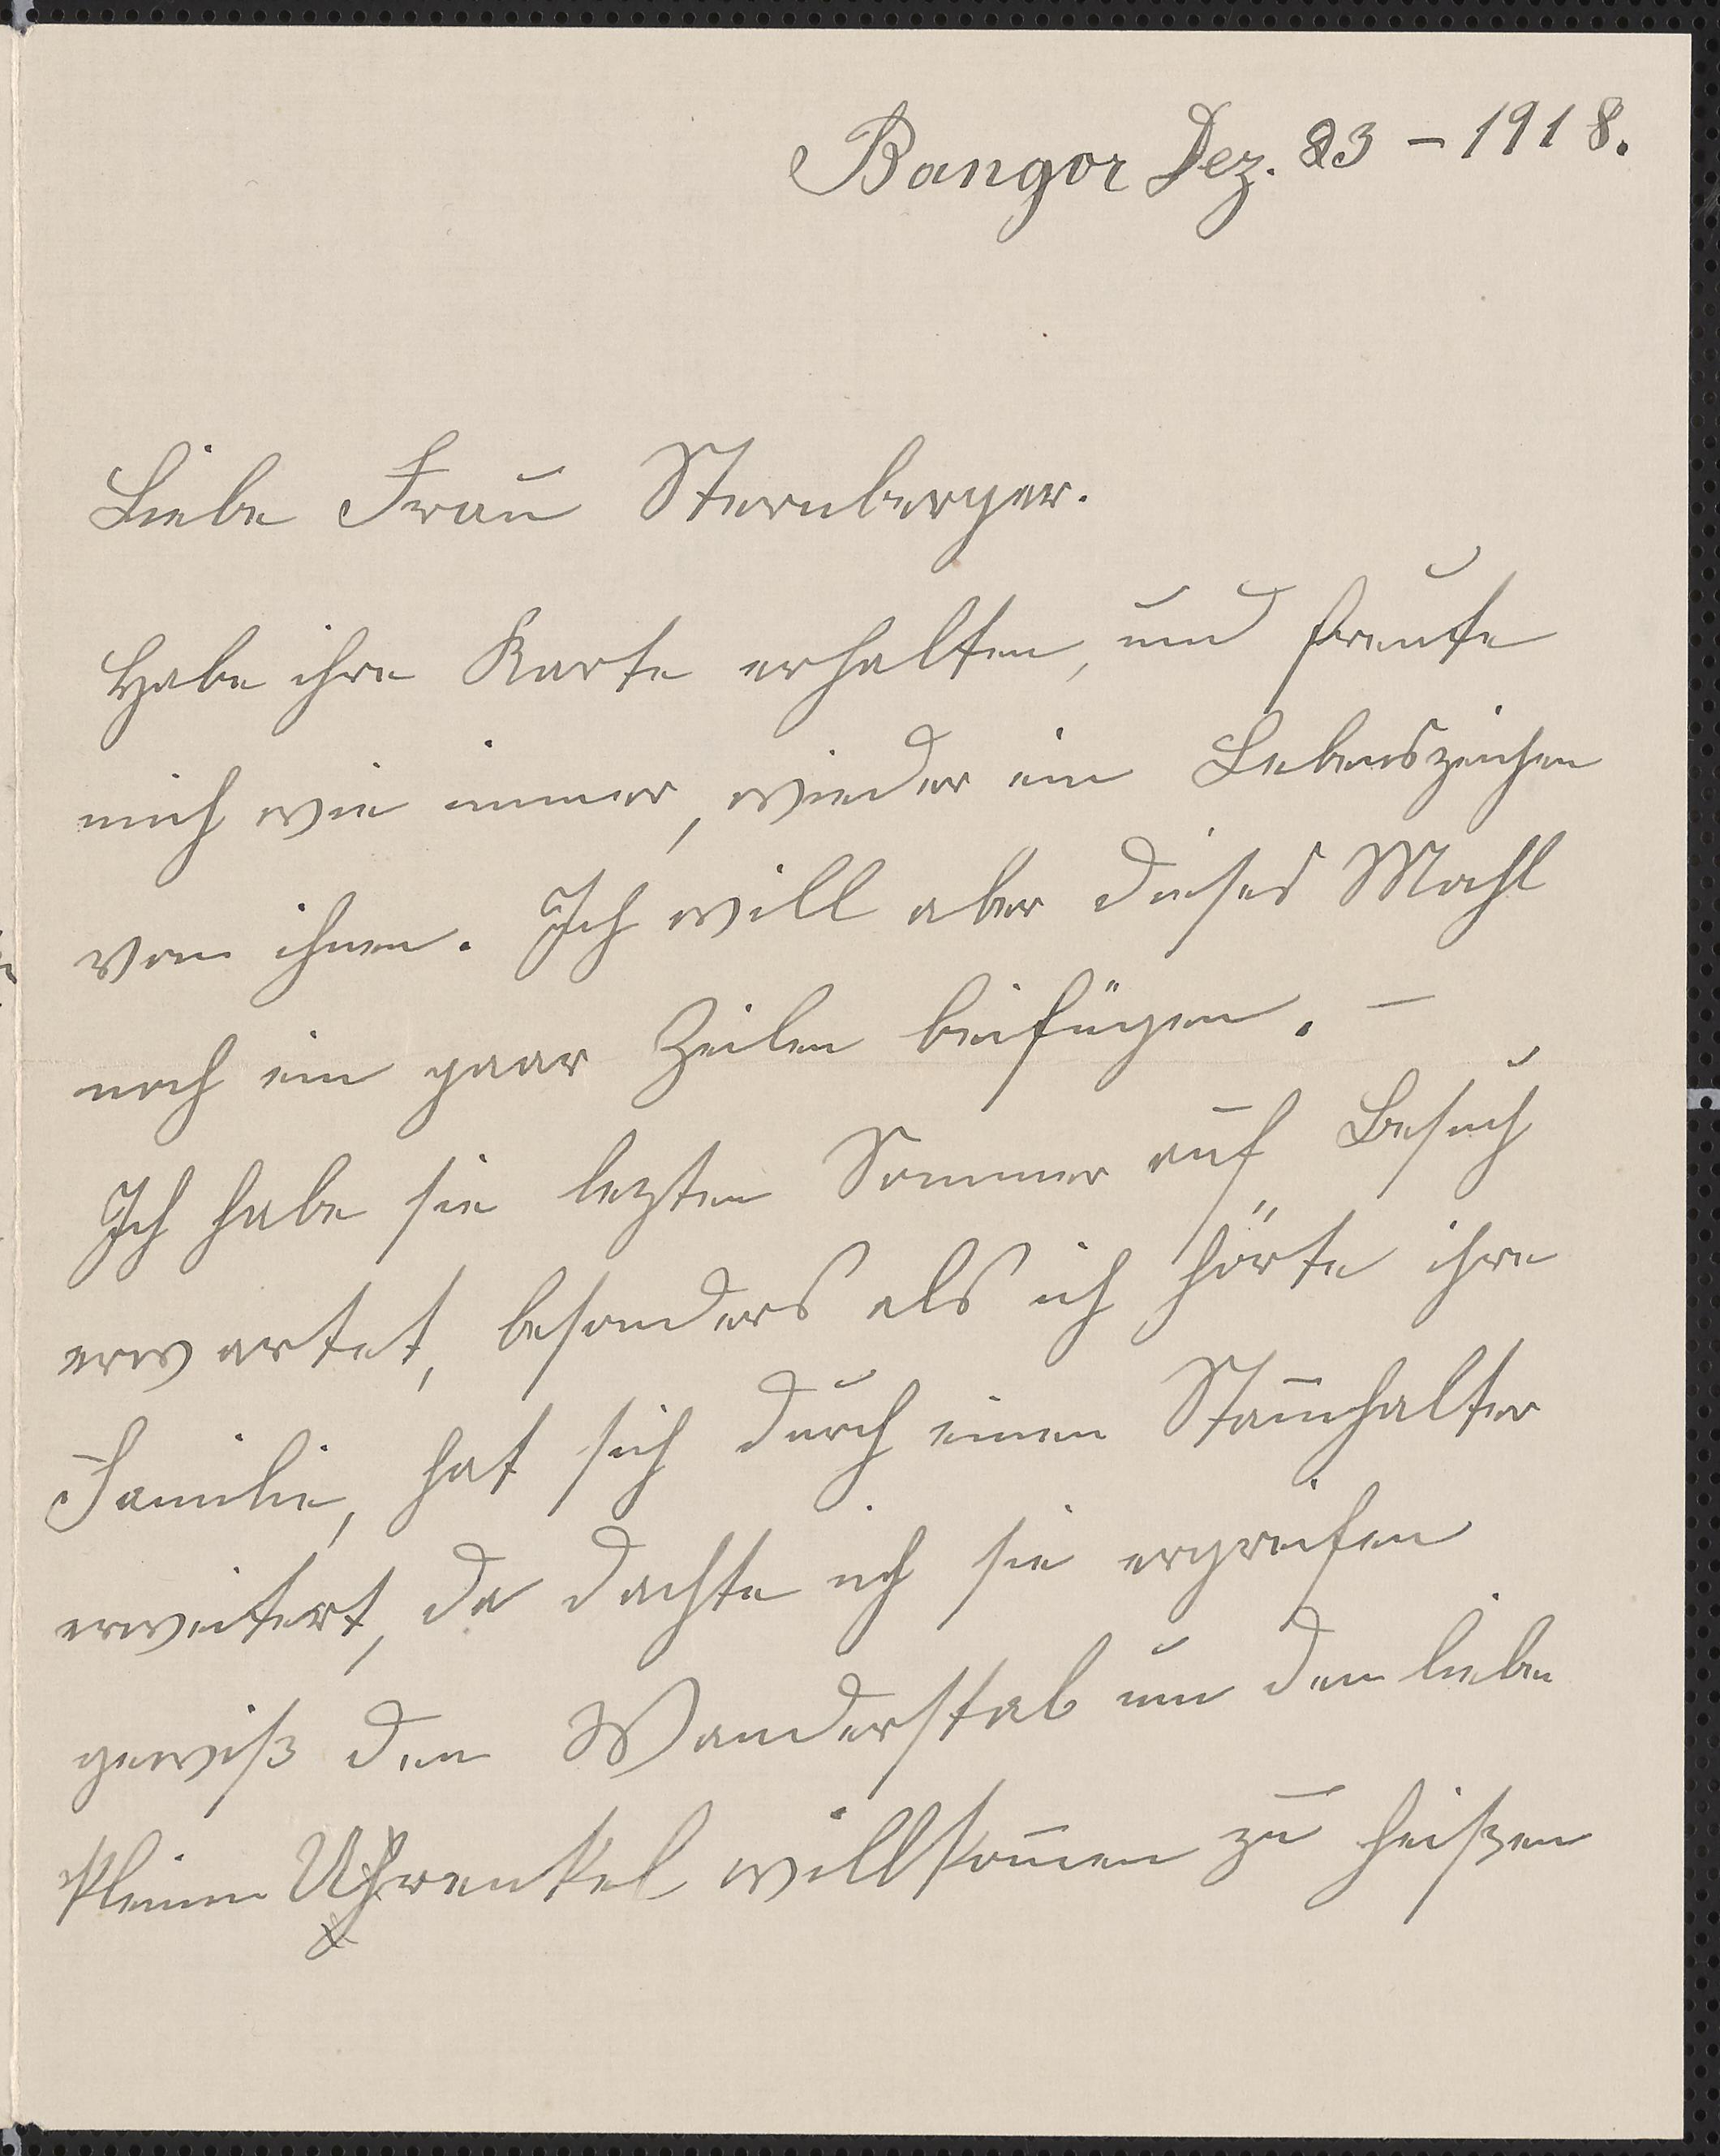 Bangor Dez. 23 - 1918.
Liebe Frau Sternberger.
Habe ihre Karte erhalten, und freute
mich wie immer, wieder ein Lebenszeichen
von ihnen. Ich will aber dieses Mahl
noch ein paar Zeilen beifügen. —
Ich habe sie lezten Sommer auf Besuch
erwartet, besonders als ich hörte ihre
Familie, hat sich durch einen Stam̄halter
erweitert, da dachte ich sie ergreifen
gewiß den Wanderstab um den lieben
kleinen Uhrenkel willkom̄en zu heißen